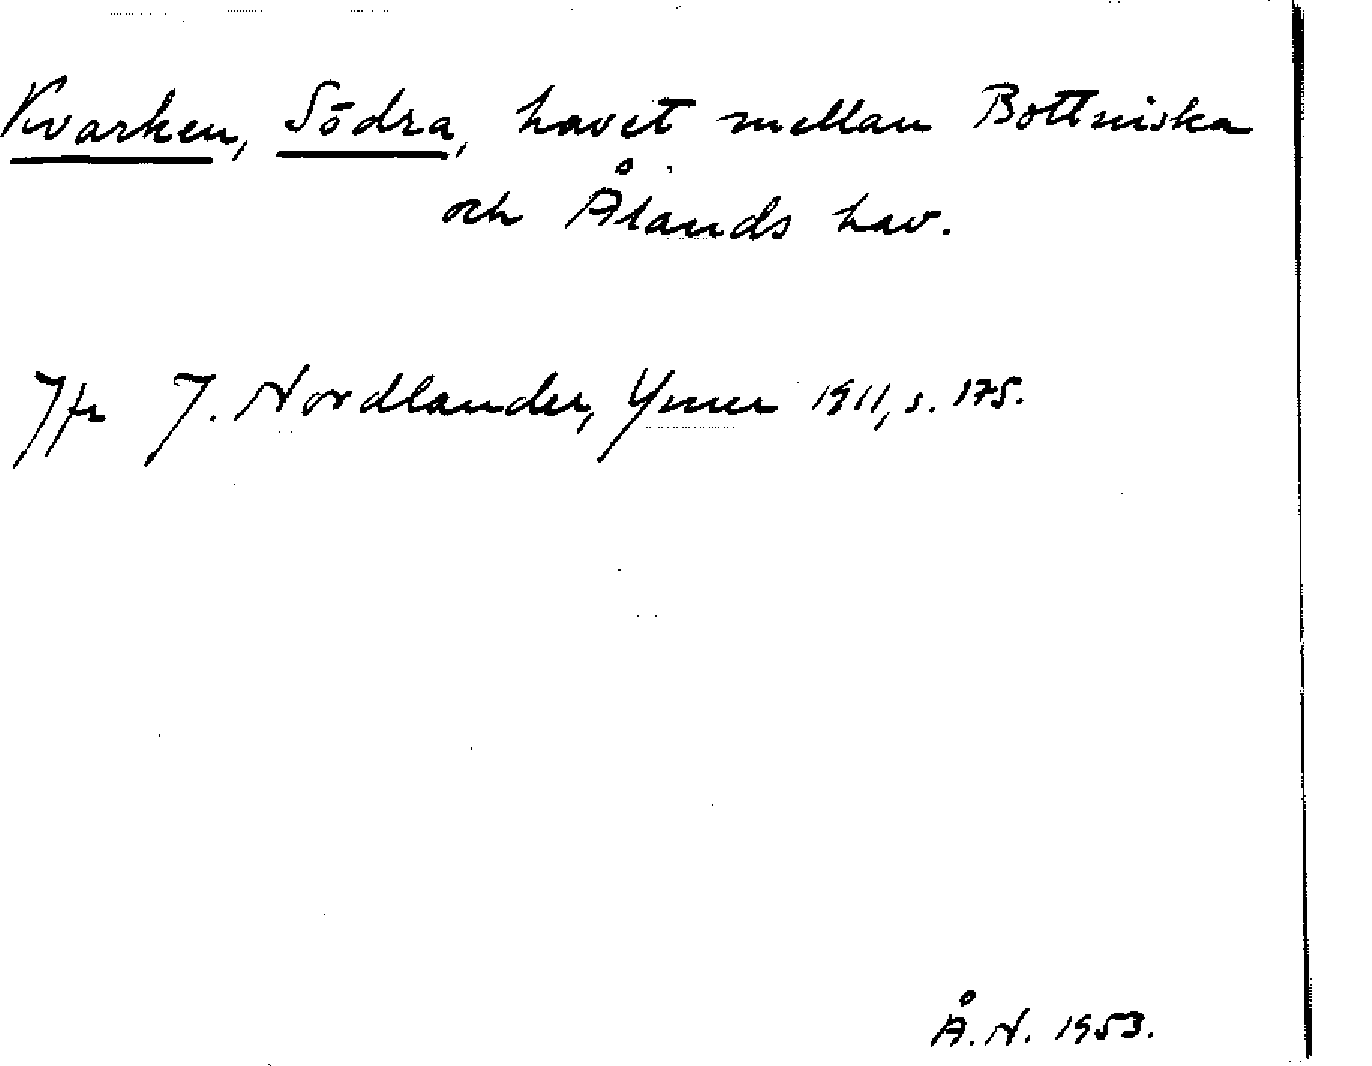 Kvarken, Södra, havet mellan Bottniska
och Ålands hav.
Jfr J. Nordlander, Ymer 1911, s. 175.
Å. N. 1953.